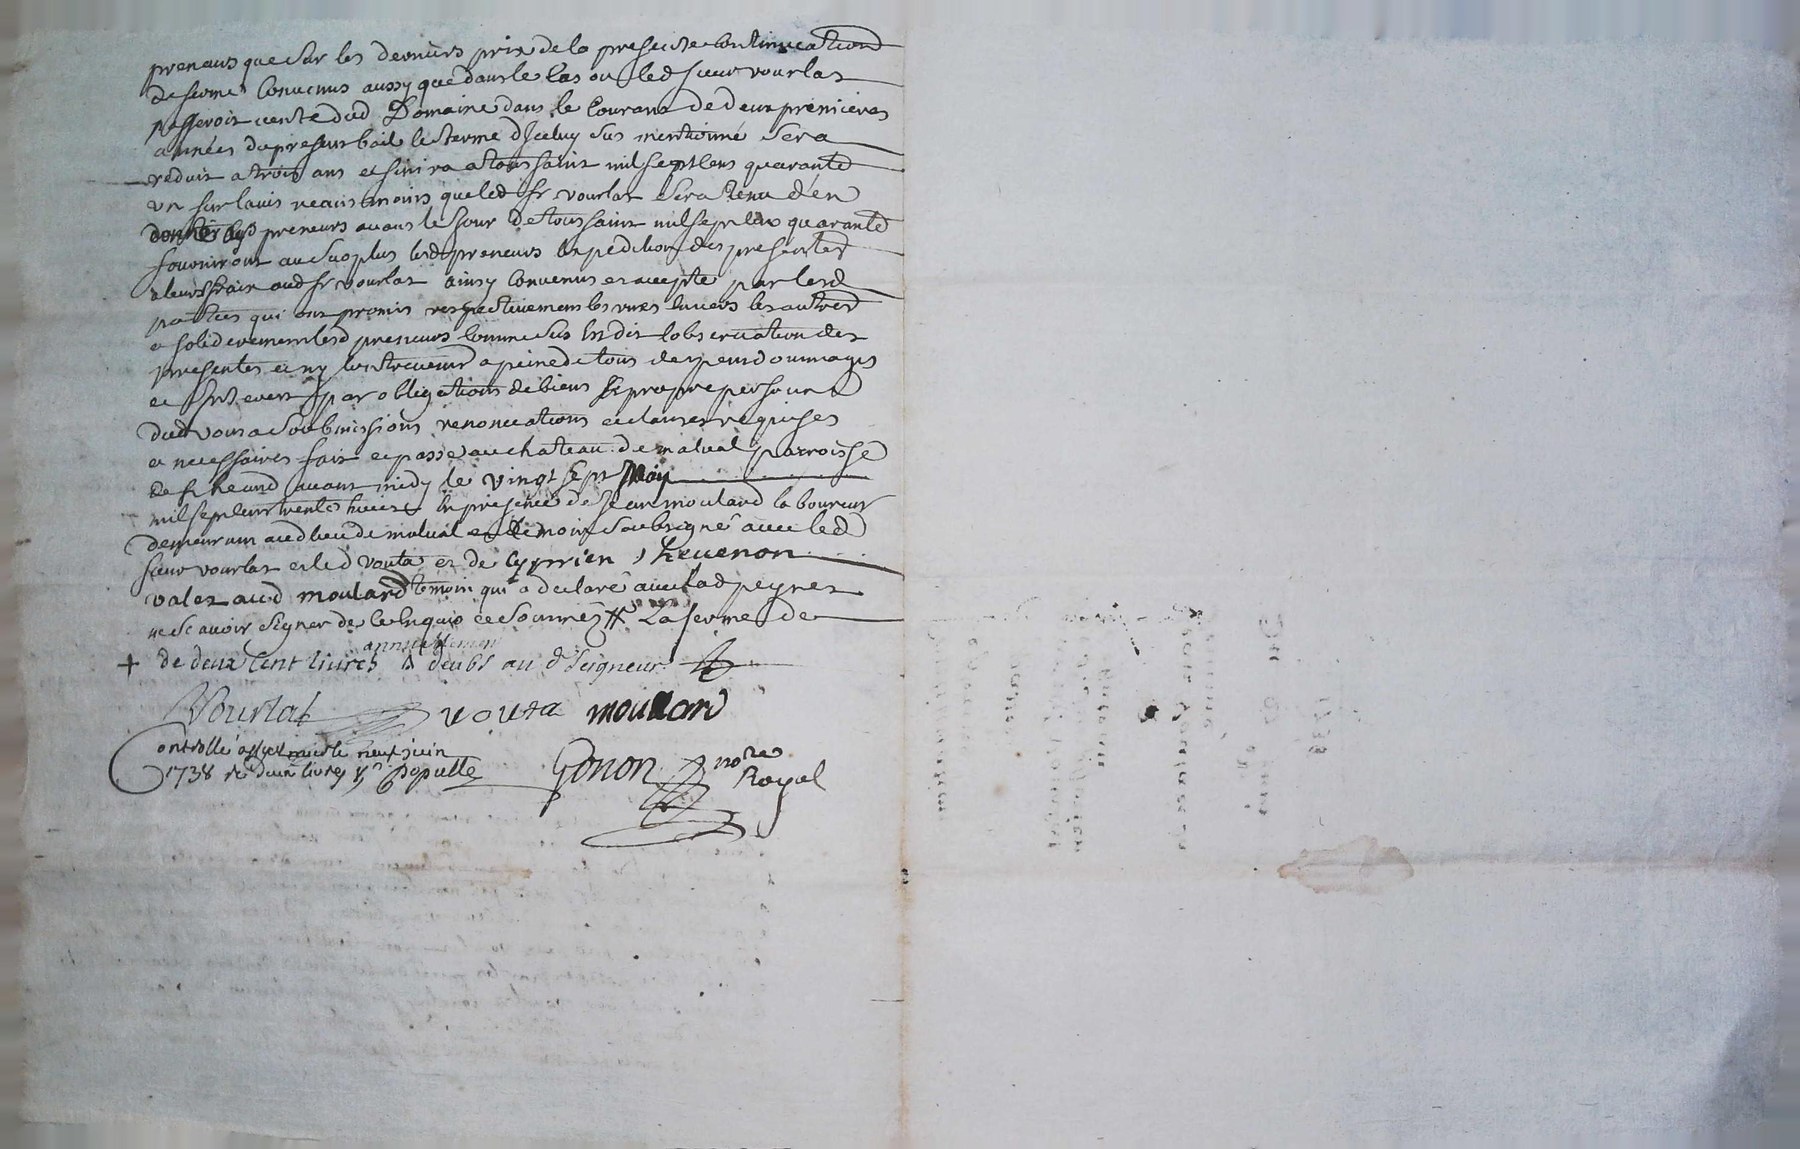 preneurs que sur les derniers prix de la presente Continuation
de ferme Convenus aussy que dans le Cas ou led sieur vourlat
passeroit vente dud Domaine dans le Courant de deux premieres
années du present bail le terme d'Iceluy sus mentionné sera
reduit a trois ans et finira a toussaint mil sept Cens quarante
un sur lavis neans moins que led sr vourlat sera tenu d'en
donner ausd preneurs avant le jour de toussaint mil sept Cens quarante
fourniront au surplus lesd preneurs Expedition des presentes
a leurs frais aud sr vourlat ainsy Convenus et accepté par lesd
parties qui ont promis respectivement les unes Envers les autres
et soliderement lesd preneurs Comme sus Est dit lobservation des
presentes et ny Contrevenir a peine de tous depens dommages
et par obligations de biens propre personne
dud vouta soubmissions renonciations et clauses requises
et necessaires fait et passé au chateau de malval parroisse
de st heand avant midy le vingt sept May
mil sept Cens trente huict En presence de Jean moulard laboureur
demeurant aud lieu de malval et temoin soubsigné avec led
sieur vourlat et led vouta et de Cyprien thevenon
valet aud moulard temoin qui a declaré avec lad peyret
ne scavoir signer de ce Enquis et sommés # La ferme de
+ de deux Cent livres annuellement deubs au d seigneur
Vourlat vouta moulard
Controllé a le neuf juin
1738 Re douze livres
Gonon nore
Royal